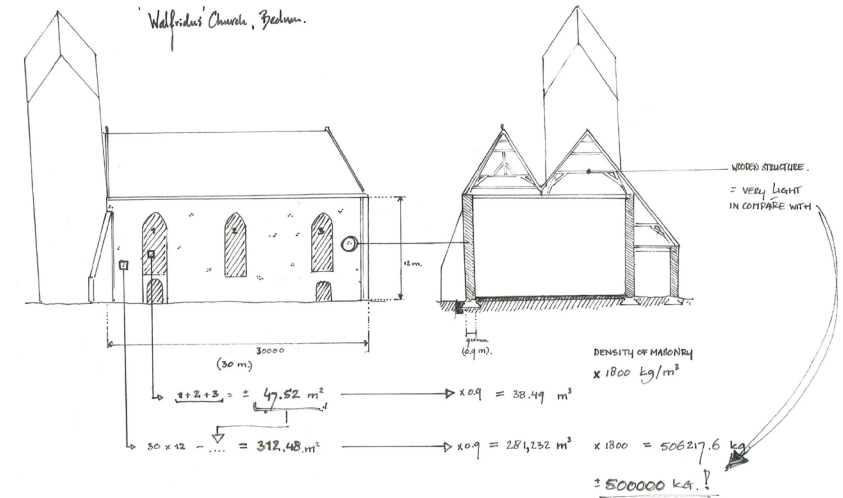 'Walfridus' Church, Bedum.
WOODEN STRUCTURE.
= VERY LIGHT
IN COMPARE WITH
1
2
3
12 m.
30000
(30 m.)
(0.9 m).
DENSITY OF MASONRY
x 1800 kg/m³
1+2+3 = ± 47.52 m² x 0.9 = 38.49 m³
30 x 12 - .... = 312,48 m² x 0.9 = 281,232 m³ x 1800 = 506217.6 kg
± 500000 KG.!